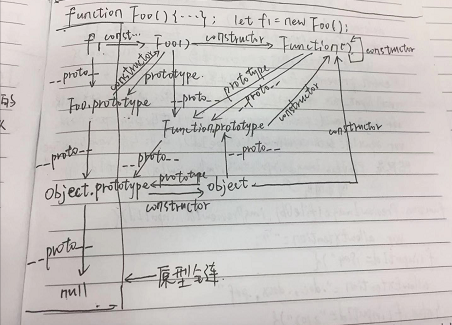 function Foo() {····}; let f1 = new Foo();
f1 const... Foo() constructor Function() constructor
__proto__ constructor prototype __proto__ prototype __proto__
Foo.prototype Function.prototype constructor constructor
__proto__ __proto__ __proto__
Object.prototype prototype object
constructor
__proto__
null 原型链